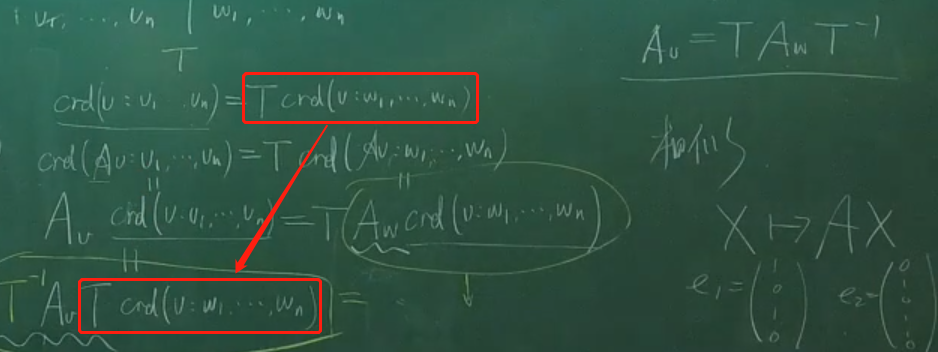 v₁, ⋯, vₙ | w₁, ⋯, wₙ
T
crd(v : v₁ ⋯ vₙ) = T crd(v : w₁, ⋯, wₙ)
crd(Av : v₁, ⋯, vₙ) = T crd(Av : w₁, ⋯, wₙ)
Aᵥ crd(v : v₁, ⋯, vₙ) = T(A_w crd(v : w₁, ⋯, wₙ))
T⁻¹ Aᵥ T crd(v : w₁, ⋯, wₙ) =
Aᵥ = T A_w T⁻¹
相似
X ↦ AX
e₁ = (1 0 ⋮ 0) e₂ = (0 1 0 ⋮ 0)